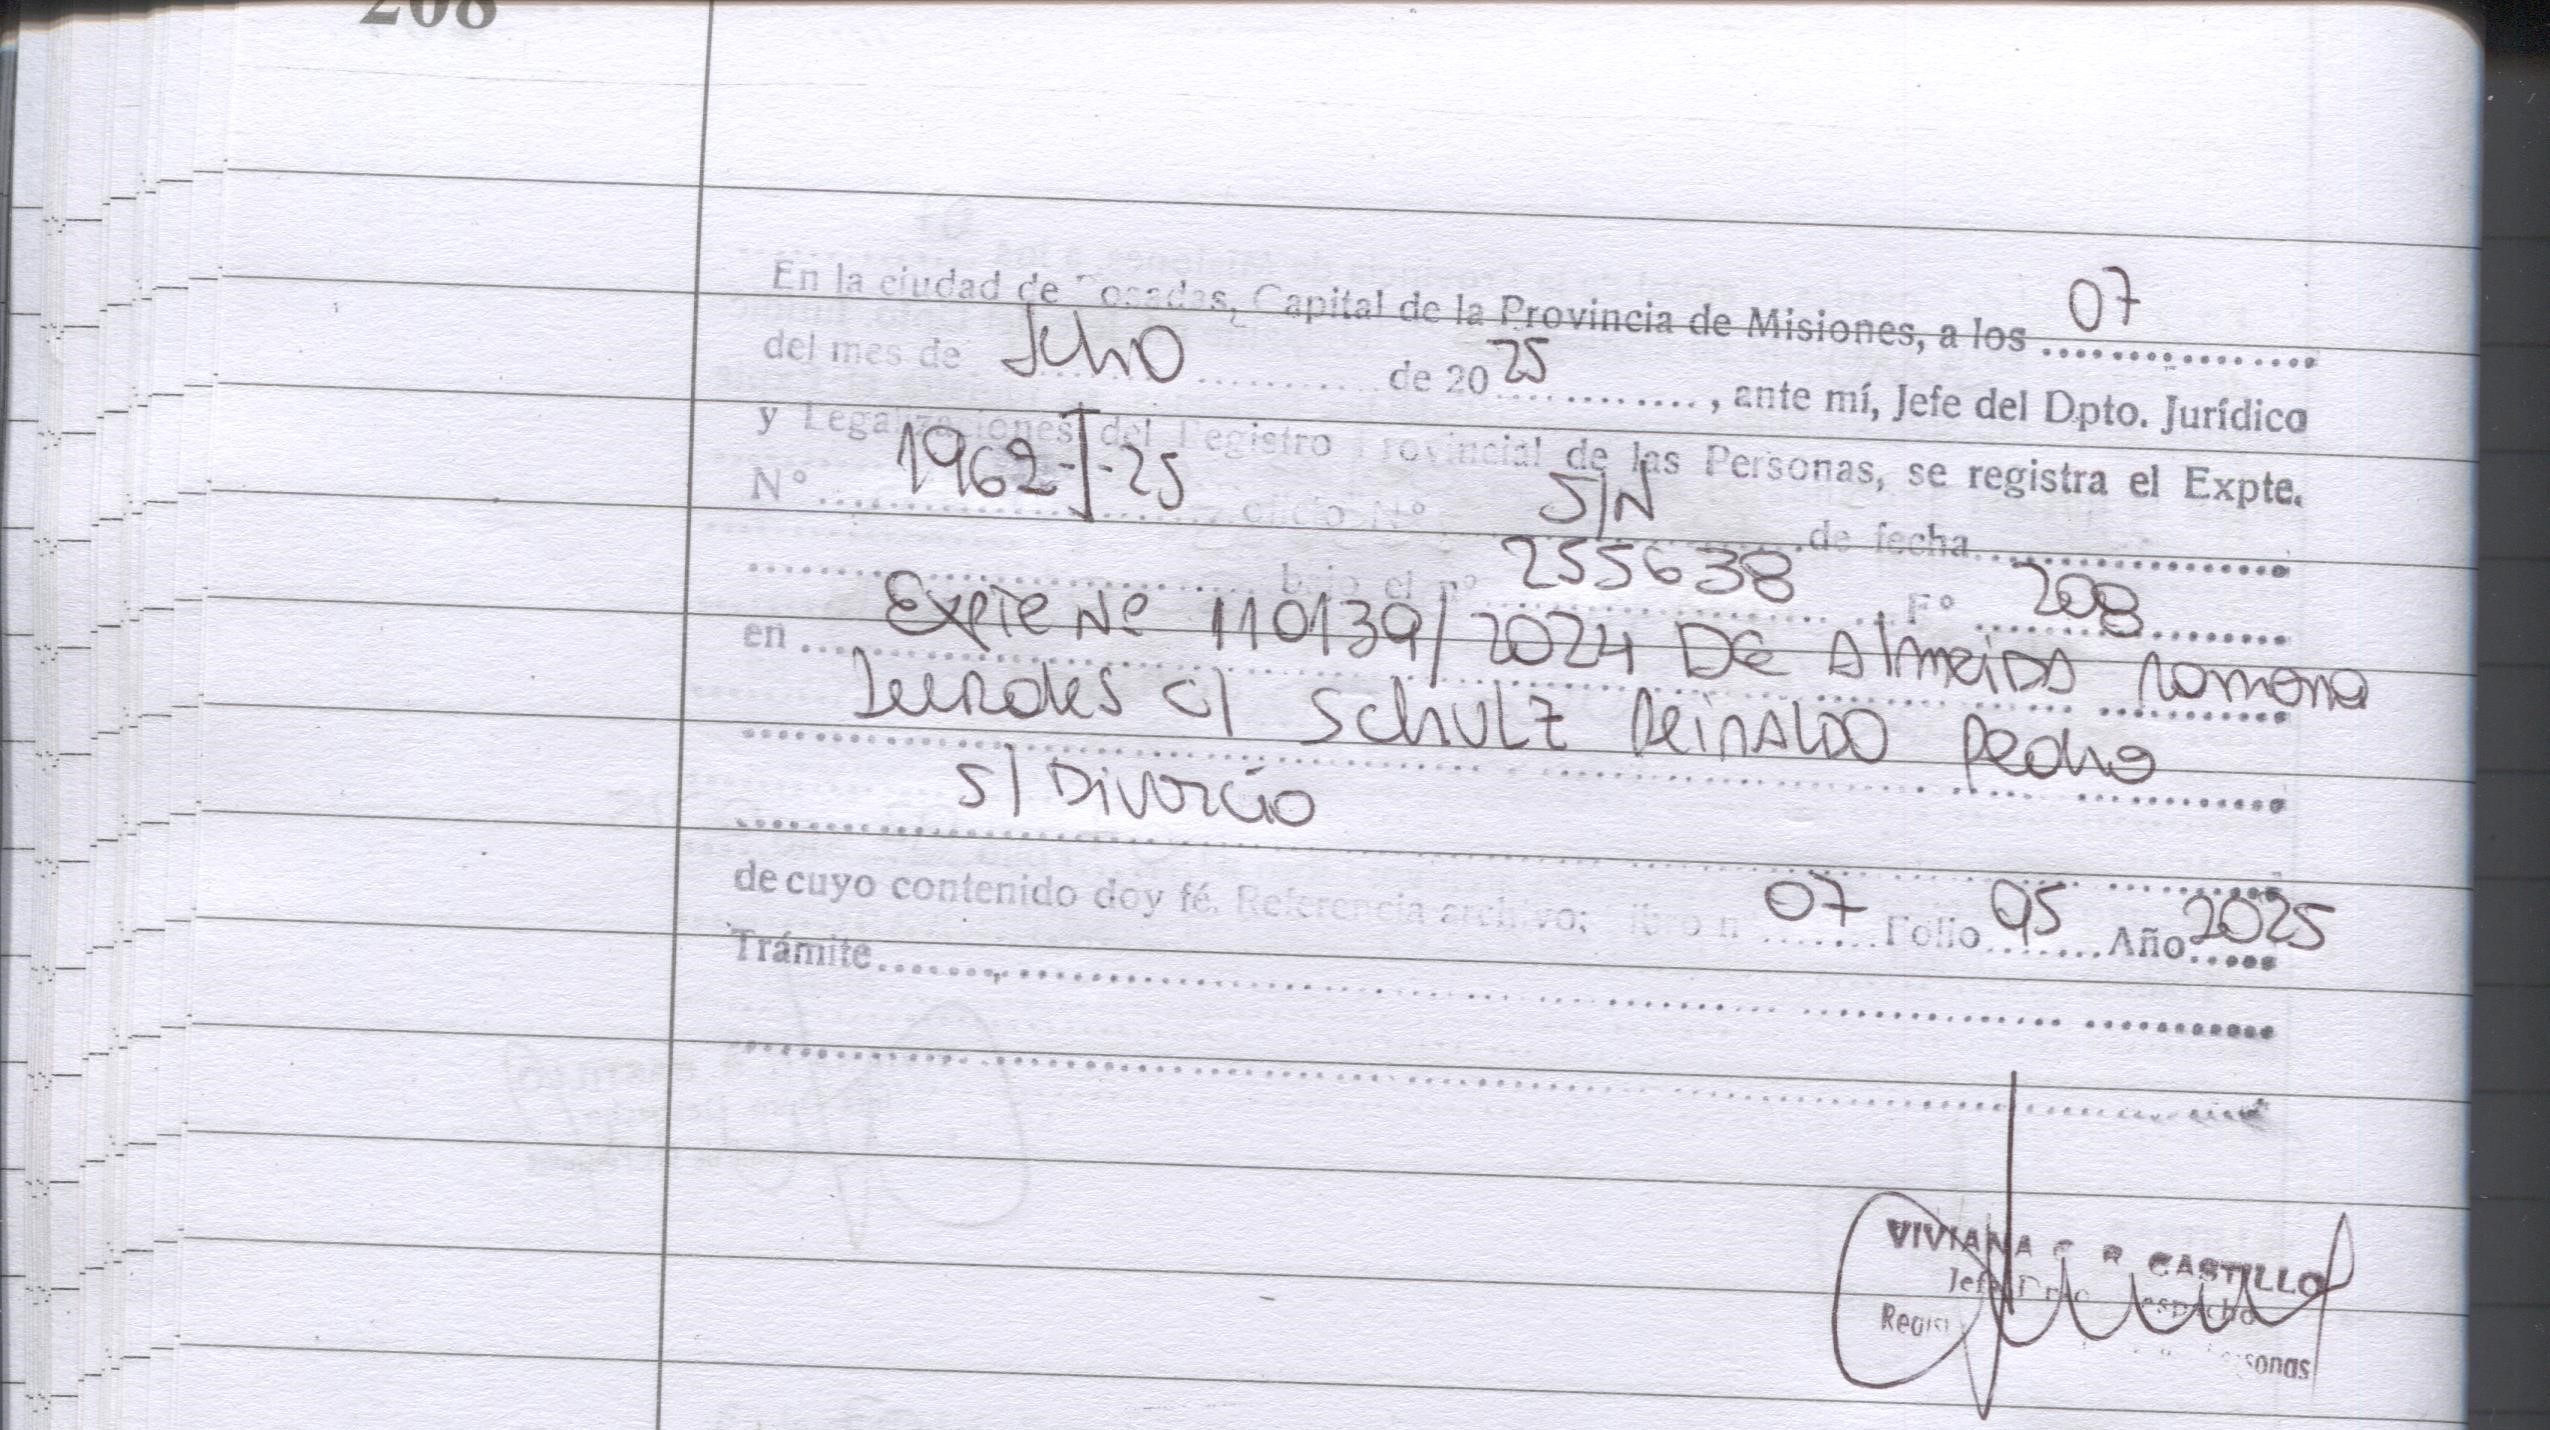 208
En la ciudad de Posadas, Capital de la Provincia de Misiones, a los 07
del mes de Julio de 2025, ante mí, Jefe del Dpto. Jurídico
y Legalizaciones del Registro Provincial de las Personas, se registra el Expte.
N° 1962-J-25 oficio N° S/N de fecha
bajo el n° 255638 F° 208
en Expte Nº 110139/2024 DE AlmeiDA Ramona
Lurdes c/ Schulz ReinALDO Pedro
S/ Divorcio
de cuyo contenido doy fé. Referencia archivo: Libro n° 07 Folio 95 Año 2025
Trámite
VIVIANA C R CASTILLO
Jefe Dpto Despacho
Personas